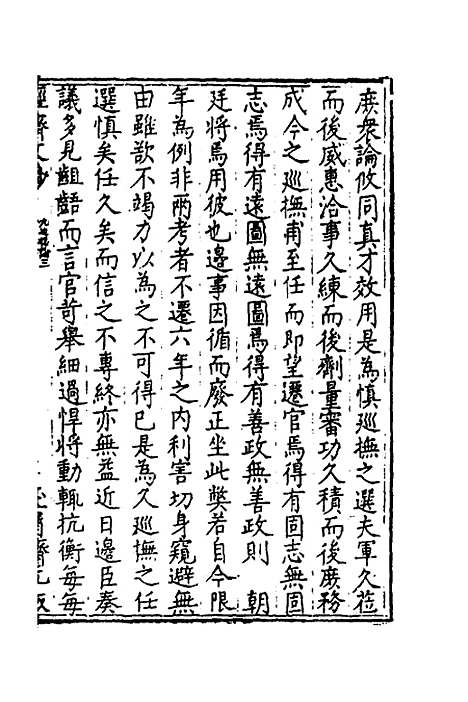 庶衆論攸同真才效用是為慎廵撫之選夫軍久蒞
而後威惠洽事久練而後劑量審功久積而後庶務
成今之廵撫甫至任而即望遷官焉得有固志無固
志焉得有遠圖無遠圖焉得有善政無善政則　朝
廷將焉用彼也邉事因循而廢正坐此獘若自今限
年為例非兩考者不遷六年之内利害切身窺避無
由雖欲不竭力以為之不可得已是為久廵撫之任
選慎矣任久矣而信之不專終亦無益近日邉臣奏
議多見齟齬而言官苛舉細過悍將動輙抗衡每每